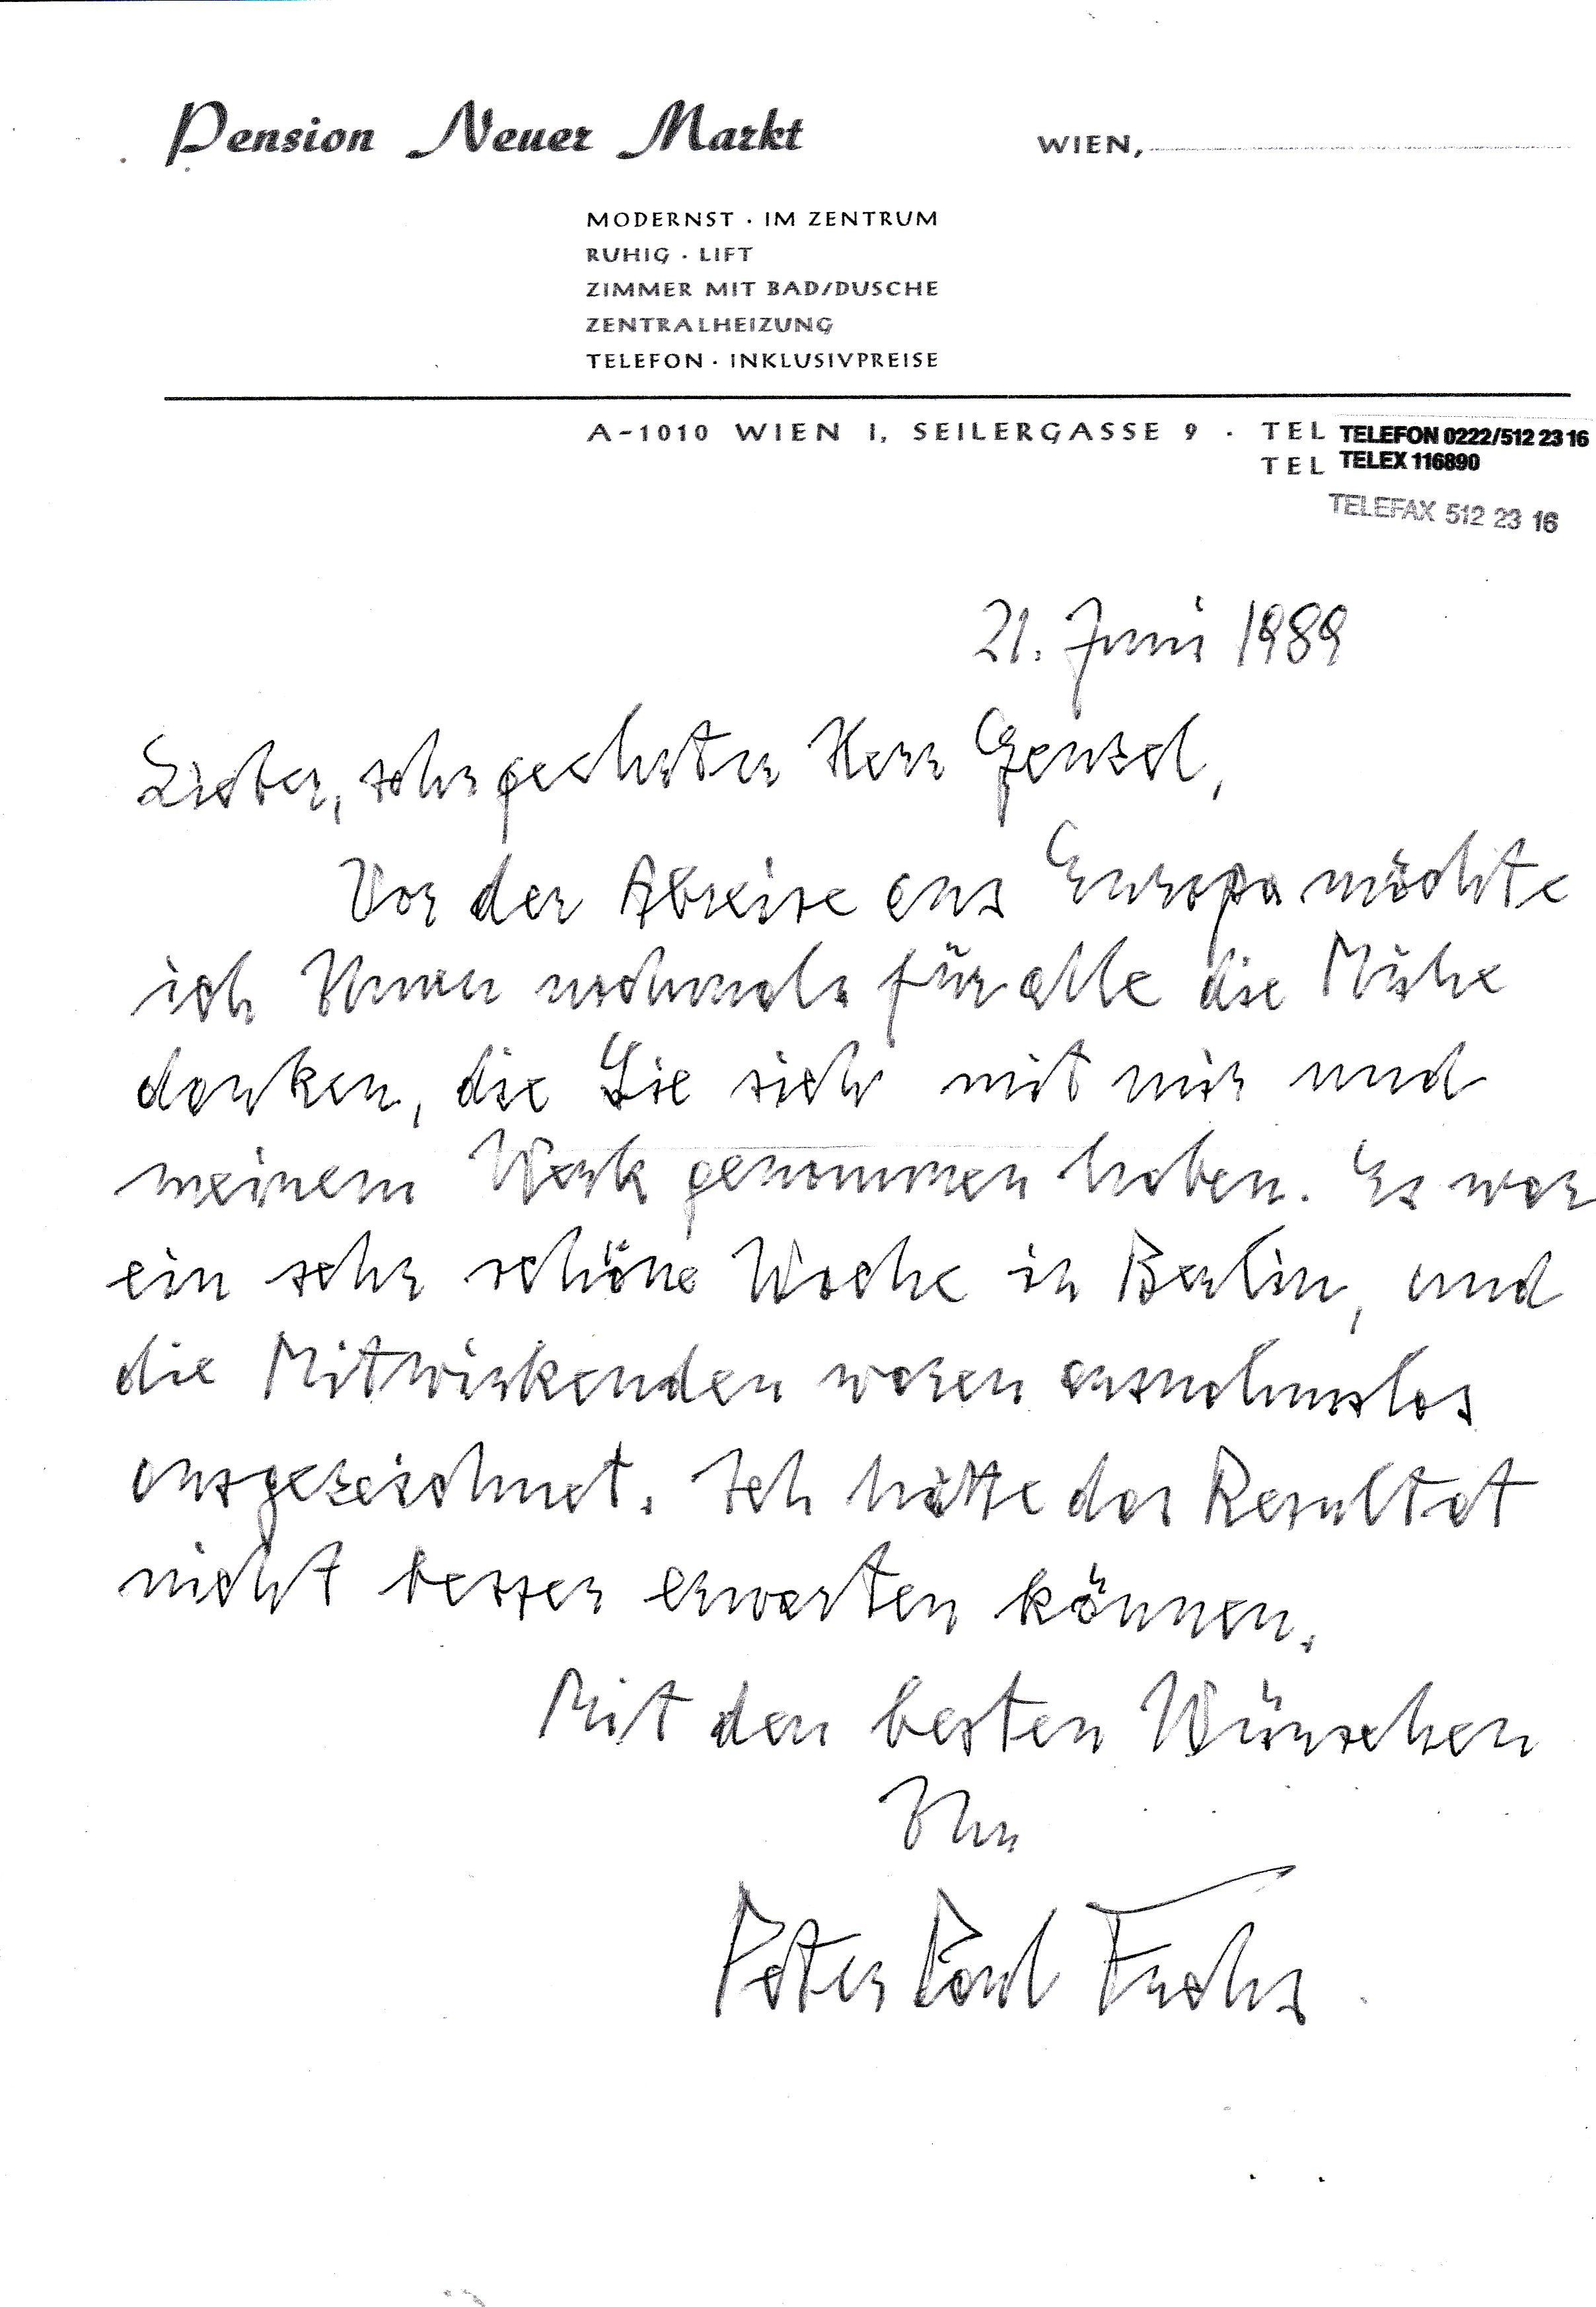 Pension Neuer Markt
WIEN,
MODERNST · IM ZENTRUM
RUHIG · LIFT
ZIMMER MIT BAD/DUSCHE
ZENTRALHEIZUNG
TELEFON · INKLUSIVPREISE
A-1010 WIEN I, SEILERGASSE 9 · TEL TELEFON 0222/512 23 16
TEL TELEX 116890
TELEFAX 512 23 16
21. Juni 1989
Lieber, sehr geehrter Herr Gensel,
Vor der Abreise aus Europa möchte
ich Ihnen nochmals für alle die Mühe
danken, die Sie sich mit mir und
meinem Werk genommen haben. Es war
ein sehr schöne Woche in Berlin, und
die Mitwirkenden waren ausnahmslos
ausgezeichnet. Ich hätte das Resultat
nicht besser erwarten können.
Mit den besten Wünschen
Ihr
Peter Paul Fuchs